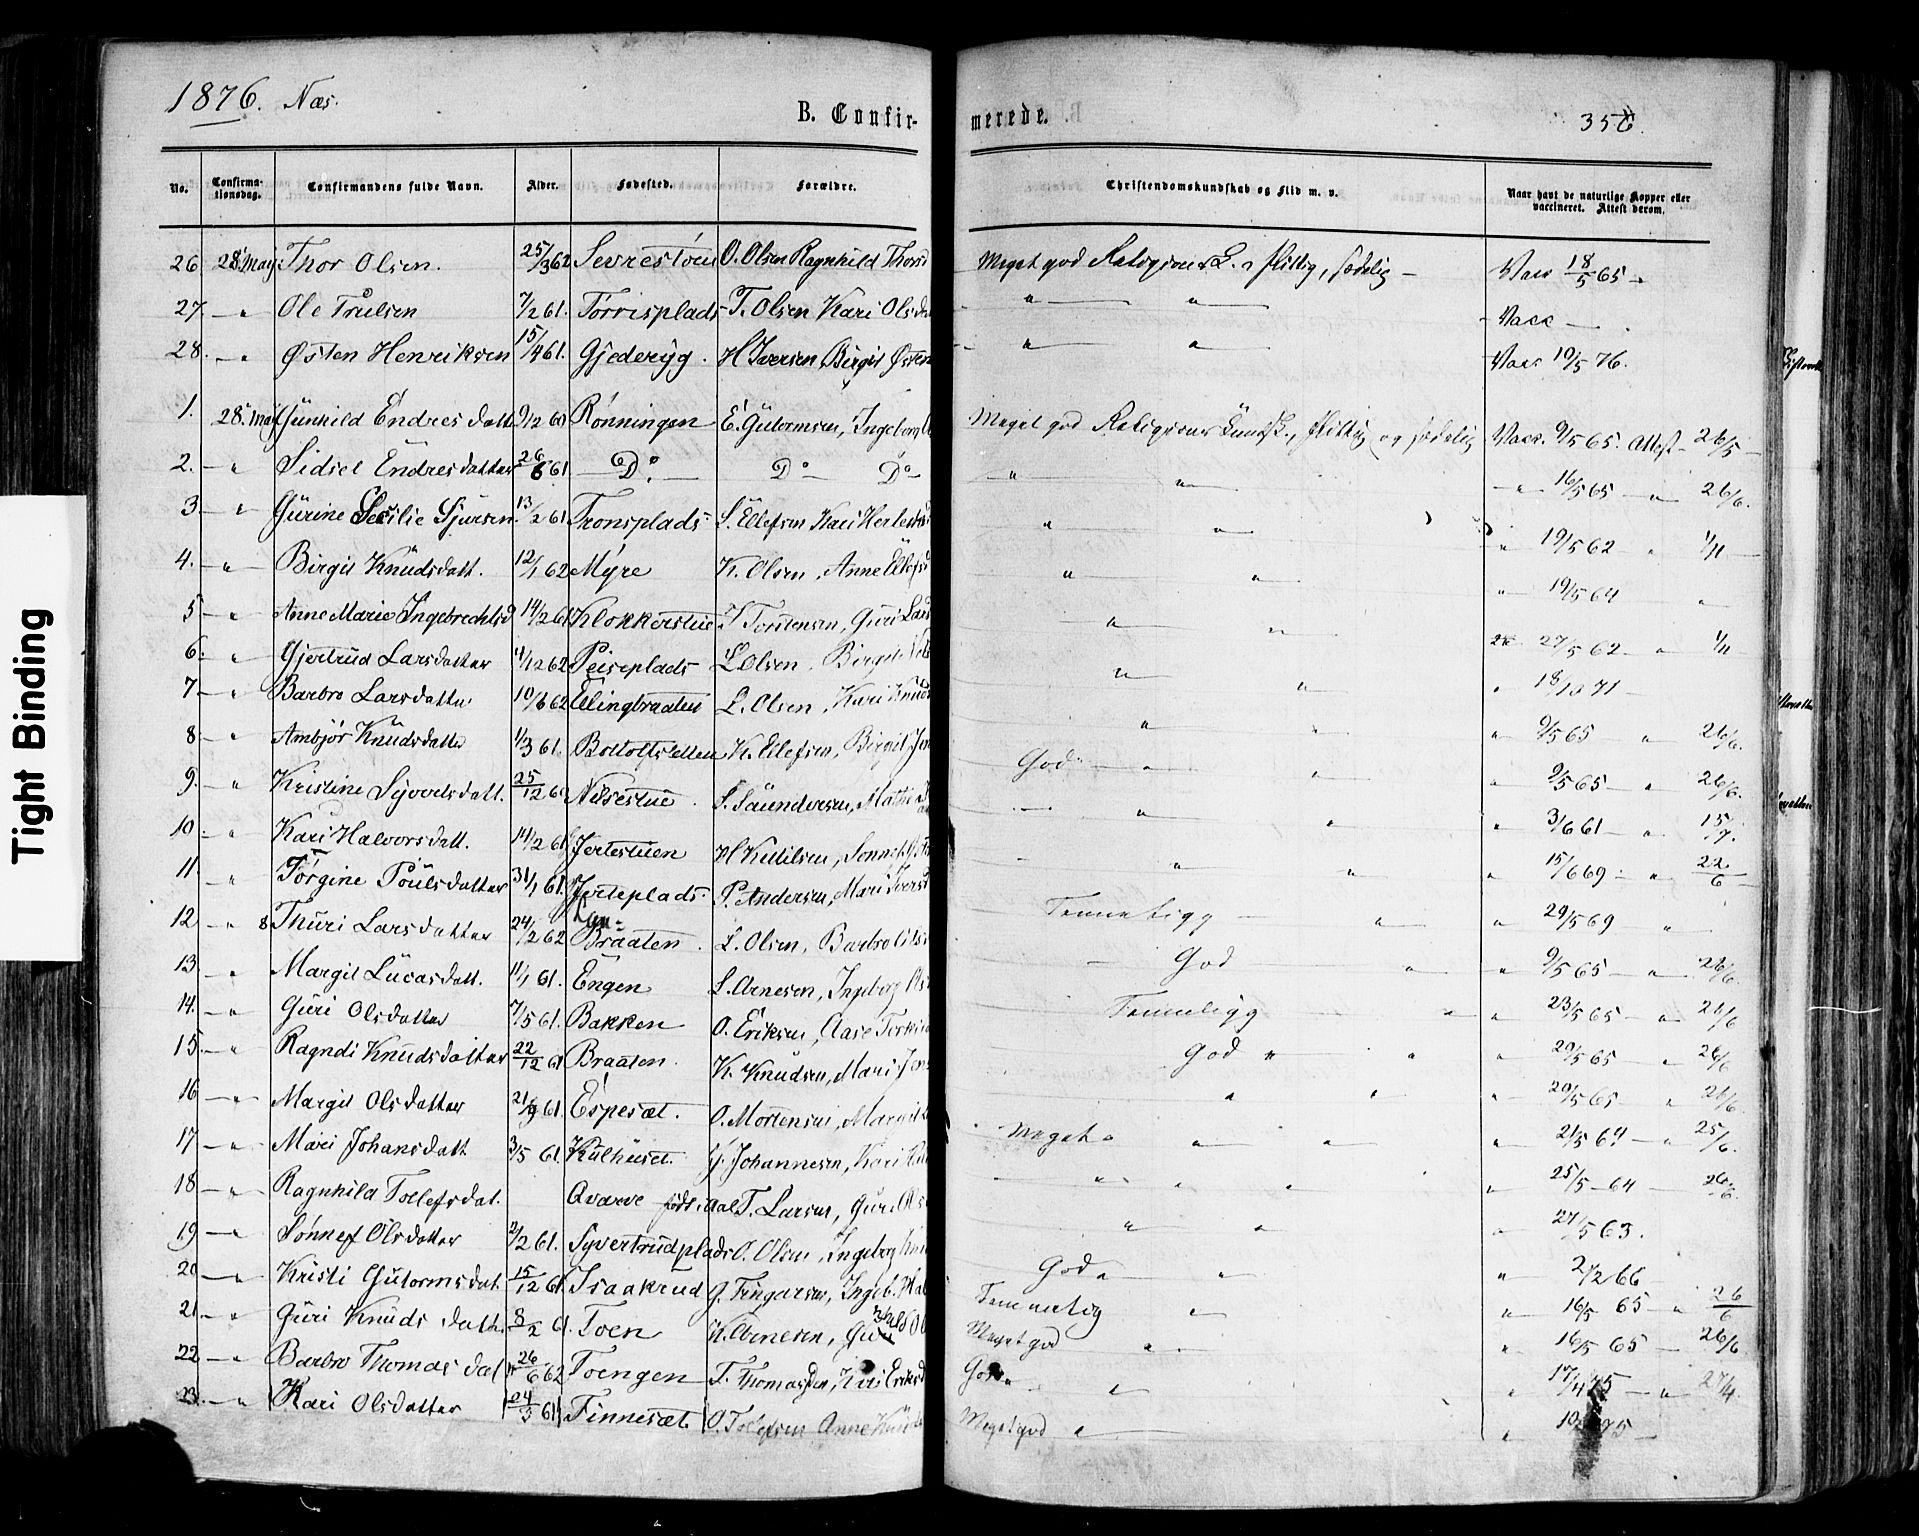 1876. Næs.
B. Confirmerede.
356.
No.
Confirmationsdag.
Confirmandens fulde Navn.
Alder.
Fødested.
Forældre.
Christendomskundskab og Flid m. v.
Naar havt de naturlige Kopper eller vaccineret. Attest derom.
26 28. May Thor Olsen. 25/3 62 Sevrestöen O. Olsen Ragnhild Thorsd Meget god Religions K. flittig, sædelig — Vacc 18/5 65 -
27 — " Ole Trulsen 7/2 61. Torrisplads T. Olsen Kari Olsd " " Vacc —
28. — " Østen Henriksen 15/4 61. Gjederyg. H Iversen, Birgit Østen " " Vacc 10/5 76.
1. 28. May Gunhild Endresdatt 9/12 60 Rønningen E. Gutormsen, Ingeborg Meget god Religions Kundsk., flittig og sædelig Vacc. 9/5 65. Attest 26/5 —
2. — " Sidsel Endresdatter 26/6 61 — Do. — Do — Do — " " — " 16/5 65 — " 26/6.
3 — " Gurine Secilie Sjursen. 13/2 61 Tronsplads S. Ellefsen Kari " " " 19/5 62 — " 1/11 —
4. — " Birgit Knudsdatt. 12/1 62 Myre K. Olsen, Anne Ellefsd " " " 19/5 64 "
5 — " Anne Marie Ingebrechtsd 14/2 61 Klokkerstue T Torstensen, Guri Lars " " 27/5 62 — " 1/11
6. " Gjertrud Larsdatter 4/12 62 Peiseplads L Olsen. Birgit Nils " " " 18/10 71 —
7 — " Barbro Larsdatter 10/6 62 Ellingbraaten L. Olsen, Kari Knuds " " 9/5 65 " 26/6.
8 — " Ambjör Knudsdatter 1/3 61. Bottolfsletten K. Ellefsen, Birgit Jen God — " " " 9/5 65 — " 26/6.
9. — " Kristine Syverdsdatt. 25/12 61 Nilsestue. S. Saundersen, Mathe " " " 3/6 61 — " 15/7.
10. — " Kari Halvorsdatt. 14/2 61 Jertestuen H Ketilsen, Sönnef " " " 15/6 69 — " 22/6 —
11. " Törgine Poulsdatter 31/1 61. Jerteplads. P. Andersen, Mari Ivers Temmeligg — " " 29/5 69 "
12 — " 8 Thuri Larsdatter 24/2 62 Lün= Braaten. L. Olsen, Barbro Nils — God — " " 9/5 65 — " 26/6.
13. " Margit Lucasdatt. 11/1 61. Engen L. Arnesen, Ingeborg Temmeligg " " 23/5 65 — " 26/6
14. — " Guri Olsdatter 7/5 61. Bakken O. Eriksen, Aase God " " " 20/5 65 " 26/6
15. — " Ragndi Knudsdatter 22/12 61 Braaten. K. Knudsen, Mari Jens " " " 20/5 65 — " 26/6.
16 — " Margit Olsdatter 21/9 61. Espesæt. O. Mortensen, Margit Meget " " " " 21/5 64 — " 25/6.
17. — " Mari Johansdatt 3/5 61. Kulhuset. J. Johannesen, Kari " " " " 25/5 64 — 26/6.
18 — " Ragnhild Tollefsdat. Qvarve født i Aal T. Larsen, Guri " " " 27/5 63.
19 — " Sönnef Olsdatter 2/2 61. Syvertrudplads O. Olsen, Ingeborg God " " " 2/2 66
20 — " Kristi Gutormsdat. 15/12 61 Isaakrud G. Fingarsen, Ingeb. Temmelig " " 16/5 65 — " 26/6
21 — " Guri Knudsdatt. 8/2 61. Toen K. Arnesen, Meget god " . " 16/5 65 — 26/6.
22 — " Barbro Thomasdat 26/6 62 Toengen T. Thomassen, Kari Eriksd God " " 17/4 75 — " 27/4.
23. — " Kari Olsdatter 24/3 61 Finnesæt O. Tollefsen Anne Knuds Meget god " " 75 —
Tight Binding